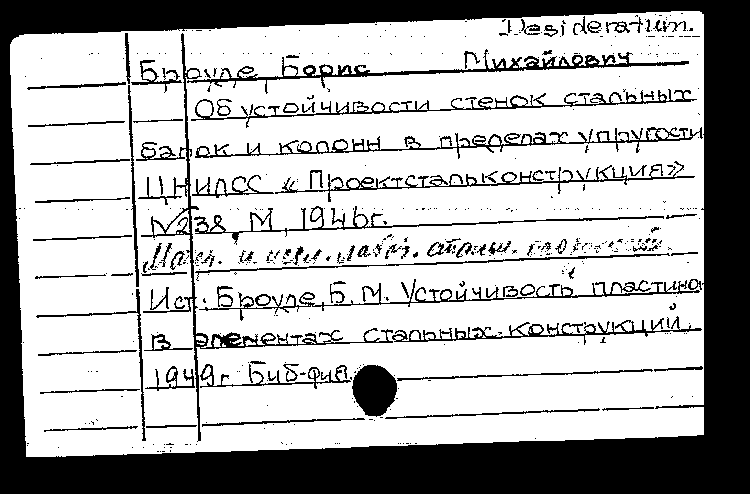 Desideratum.
Броуде, Борис Михайлович
Об устойчивости стенок стальных
балок и колонн в пределах упругости
ЦНИЛСС «Проектстальконструкция»
№238. М, 1946г.
лабор. стальн.
Ист: Броуде, Б. М. Устойчивость пластино
в элементах стальных конструкций,
1949г Биб-фия